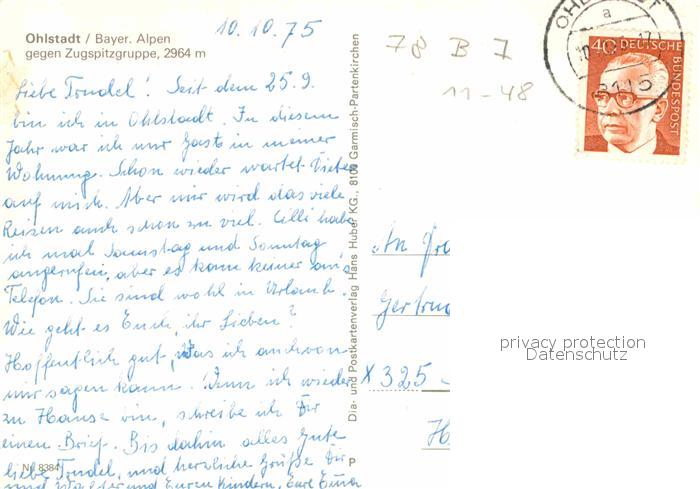 10.10.75
Ohlstadt / Bayer. Alpen
gegen Zugspitzgruppe, 2964 m
Liebe Trudel! Seit dem 25.9.
bin ich in Ohlstadt. In diesem
Jahr war ich nur Gast in meiner
Wohnung. Schon wieder wartet
auf mich. Aber mir wird das viele
Reisen auch schon zu viel. Cilli habe
ich mal Samstag und Sonntag
angerufen, aber es kam keiner an's
Telefon. Sie sind wohl in Urlaub.
Wie geht es Euch, ihr Lieben?
Hoffentlich gut, was ich auch von
mir sagen kann. Wenn ich wieder
zu Hause bin, schreibe ich Dir
einen Brief. Bis dahin alles Gute
liebe Trudel, und herzliche Grüße Dir
und Walther und Euren Kindern, Eure
Nr. 8384
Dia- und Postkartenverlag Hans Huber KG., 8100 Garmisch-Partenkirchen
P
78 B 7
11-48
OHLSTADT
a
8115
40 DEUTSCHE
BUNDESPOST
An
Gertru
X 325
H
privacy protection
Datenschutz